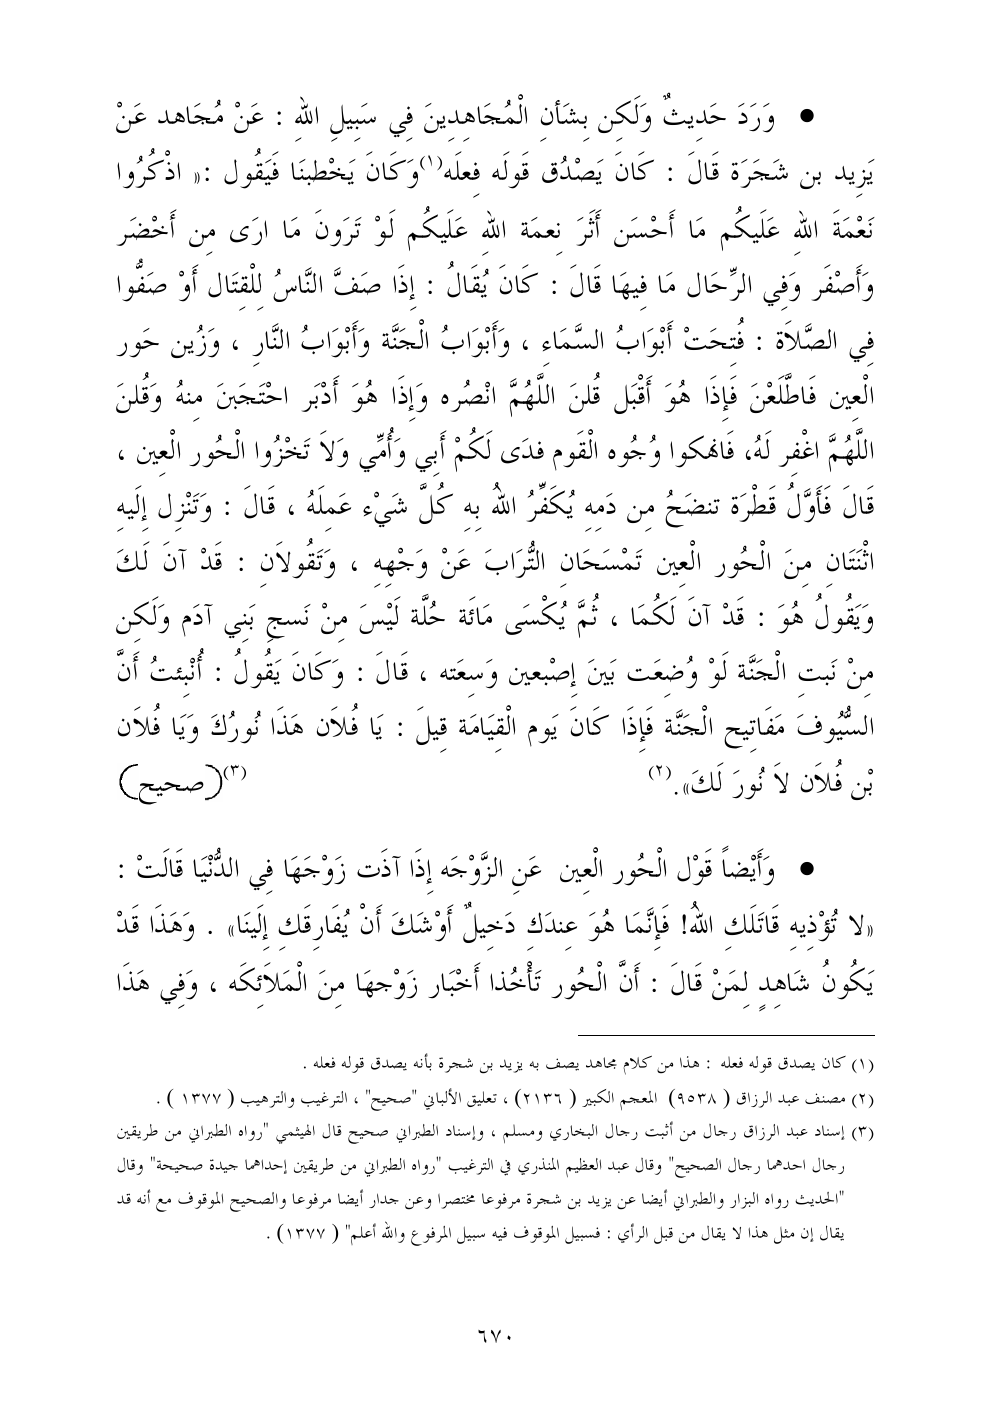 ● وَرَدَ حَدِيثٌ وَلَكِن بِشَأنِ الْمُجَاهِدِينَ فِي سَبِيلِ اللهِ : عَنْ مُجَاهد عَنْ
يَزِيد بن شَجَرَة قَالَ : كَانَ يَصْدُق قَولَه فِعلَه(١)وَكَانَ يَخْطبنَا فَيَقُول :« اذْكُرُوا
نَعْمَةَ اللهِ عَلَيكُم مَا أَحْسَن أَثَرَ نِعمَة اللهِ عَلَيكُم لَوْ تَرَونَ مَا ارَى مِن أَخْضَر
وَأَصْفَر وَفِي الرِّحَال مَا فِيهَا قَالَ : كَانَ يُقَالُ : إِذَا صَفَّ النَّاسُ لِلْقِتَال أَوْ صَفُّوا
فِي الصَّلاَة : فُتِحَتْ أَبْوَابُ السَّمَاءِ ، وَأَبْوَابُ الْجَنَّة وَأَبْوَابُ النَّارِ ، وَزُين حَور
الْعِين فَاطَّلَعْنَ فَإِذَا هُوَ أَقْبَل قُلنَ اللَّهُمَّ انْصُره وَإِذَا هُوَ أَدْبَر احْتَجَبنَ مِنهُ وَقُلنَ
اللَّهُمَّ اغْفِر لَهُ، فَانهكوا وُجُوه الْقَوم فدَى لَكُمْ أَبِي وَأُمِّي وَلاَ تَخْزُوا الْحُور الْعِين ،
قَالَ فَأَوَّلُ قَطْرَة تنضَحُ مِن دَمِهِ يُكَفِّرُ اللهُ بِهِ كُلَّ شَيْء عَمِلَهُ ، قَالَ : وَتَنْزِل إِلَيهِ
اثْنَتَانِ مِنَ الْحُور الْعِين تَمْسَحَانِ التُّرَابَ عَنْ وَجْهِهِ ، وَتَقُولاَنِ : قَدْ آنَ لَكَ
وَيَقُولُ هُوَ : قَدْ آنَ لَكُمَا ، ثُمَّ يُكْسَى مَائَة حُلَّة لَيْسَ مِنْ نَسجِ بَنِي آدَم وَلَكِن
مِنْ نَبتِ الْجَنَّة لَوْ وُضِعَت بَينَ إِصْبعين وَسِعَته ، قَالَ : وَكَانَ يَقُولُ : أُنْبئتُ أَنَّ
السُّيُوفَ مَفَاتيح الْجَنَّة فَإِذَا كَانَ يَوم الْقِيَامَة قِيلَ : يَا فُلاَن هَذَا نُورُكَ وَيَا فُلاَن
بْن فُلاَن لاَ نُورَ لَكَ».(٢) (٣)(صحيح)
● وَأَيْضاً قَوْل الْحُور الْعِين عَنِ الزَّوْجَه إِذَا آذَت زَوْجَهَا فِي الدُّنْيَا قَالَتْ :
«لا تُؤْذِيهِ قَاتَلَكِ اللهُ! فَإِنَّمَا هُوَ عِندَكِ دَخِيلٌ أَوْشَكَ أَنْ يُفَارِقَكِ إِلَينَا» . وَهَذَا قَدْ
يَكُونُ شَاهِدٍ لِمَنْ قَالَ : أَنَّ الْحُور تَأْخُذا أَخْبَار زَوْجهَا مِنَ الْمَلاَئِكَه ، وَفِي هَذَا
(١) كان يصدق قوله فعله : هذا من كلام مجاهد يصف به يزيد بن شجرة بأنه يصدق قوله فعله .
(٢) مصنف عبد الرزاق ( ٩٥٣٨) المعجم الكبير ( ٢١٣٦) ، تعليق الألباني "صحيح" ، الترغيب والترهيب ( ١٣٧٧ ) .
(٣) إسناد عبد الرزاق رجال من أثبت رجال البخاري ومسلم ، وإسناد الطبراني صحيح قال الهيثمي "رواه الطبراني من طريقين
رجال احدهما رجال الصحيح" وقال عبد العظيم المنذري في الترغيب "رواه الطبراني من طريقين إحداهما جيدة صحيحة" وقال
"الحديث رواه البزار والطبراني أيضا عن يزيد بن شجرة مرفوعا مختصرا وعن جدار أيضا مرفوعا والصحيح الموقوف مع أنه قد
يقال إن مثل هذا لا يقال من قبل الرأي : فسبيل الموقوف فيه سبيل المرفوع والله أعلم" ( ١٣٧٧) .
٦٧٠